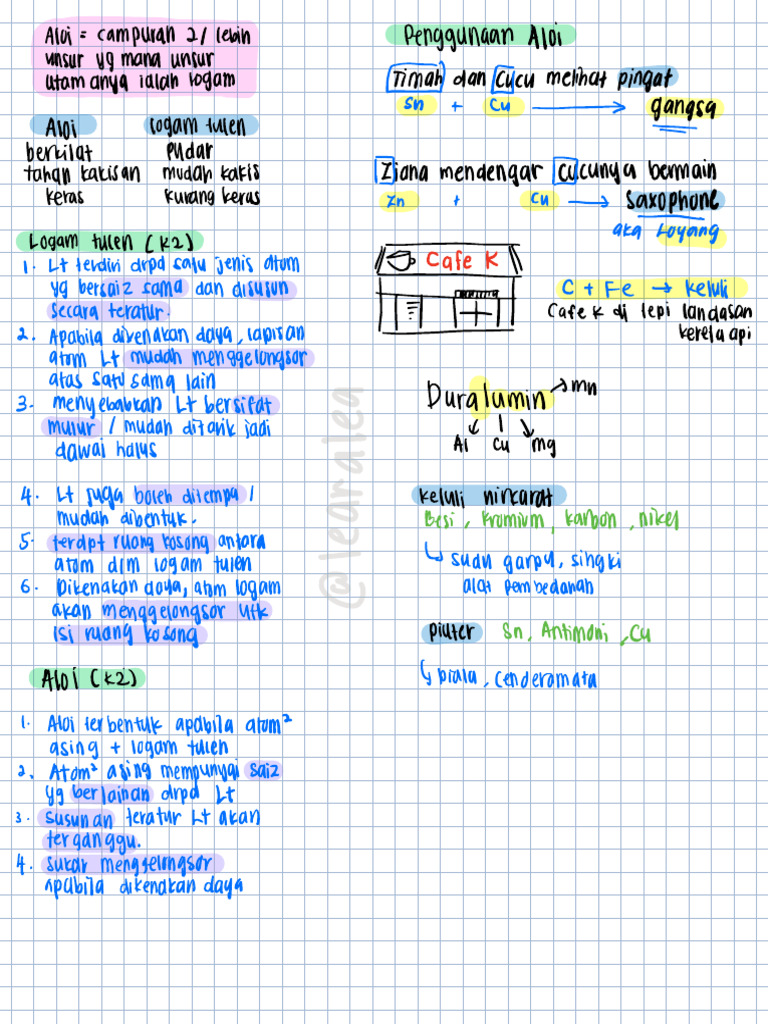 Aloi = campuran 2/ lebih
unsur yg mana unsur
utamanya ialah logam
Aloi logam tulen
berkilat pudar
tahan kakisan mudah kakis
keras kurang keras
Logam tulen (k2)
1. Lt terdiri drpd satu jenis atom
yg bersaiz sama dan disusun
secara teratur.
2. Apabila dikenakan daya, lapisan
atom Lt mudah menggelongsor
atas satu sama lain
3. menyebabkan Lt bersifat
mulur / mudah ditarik jadi
dawai halus
4. Lt juga boleh ditempa /
mudah dibentuk.
5. terdpt ruang kosong antara
atom dlm logam tulen
6. Dikenakan daya, atom logam
akan menggelongsor utk
isi ruang kosong
Aloi (k2)
1. Aloi terbentuk apabila atom²
asing + logam tulen
2. Atom² asing mempunyai saiz
yg berlainan drpd Lt
3. susunan teratur Lt akan
terganggu.
4. sukar menggelongsor
apabila dikenakan daya
Penggunaan Aloi
Timah dan Cucu melihat pingat
Sn + Cu → gangsa
Ziana mendengar cucunya bermain
Zn + Cu → saxophone
aka Loyang
Cafe K
C + Fe → keluli
Cafe K di tepi landasan
kereta api
Duralumin → mn
Al Cu mg
keluli nirkarat
Besi, kromium, karbon, nikel
↳ sudu garpu, singki
alat pembedahan
piuter Sn, Antimoni, Cu
↳ piala, cenderamata
@learalea